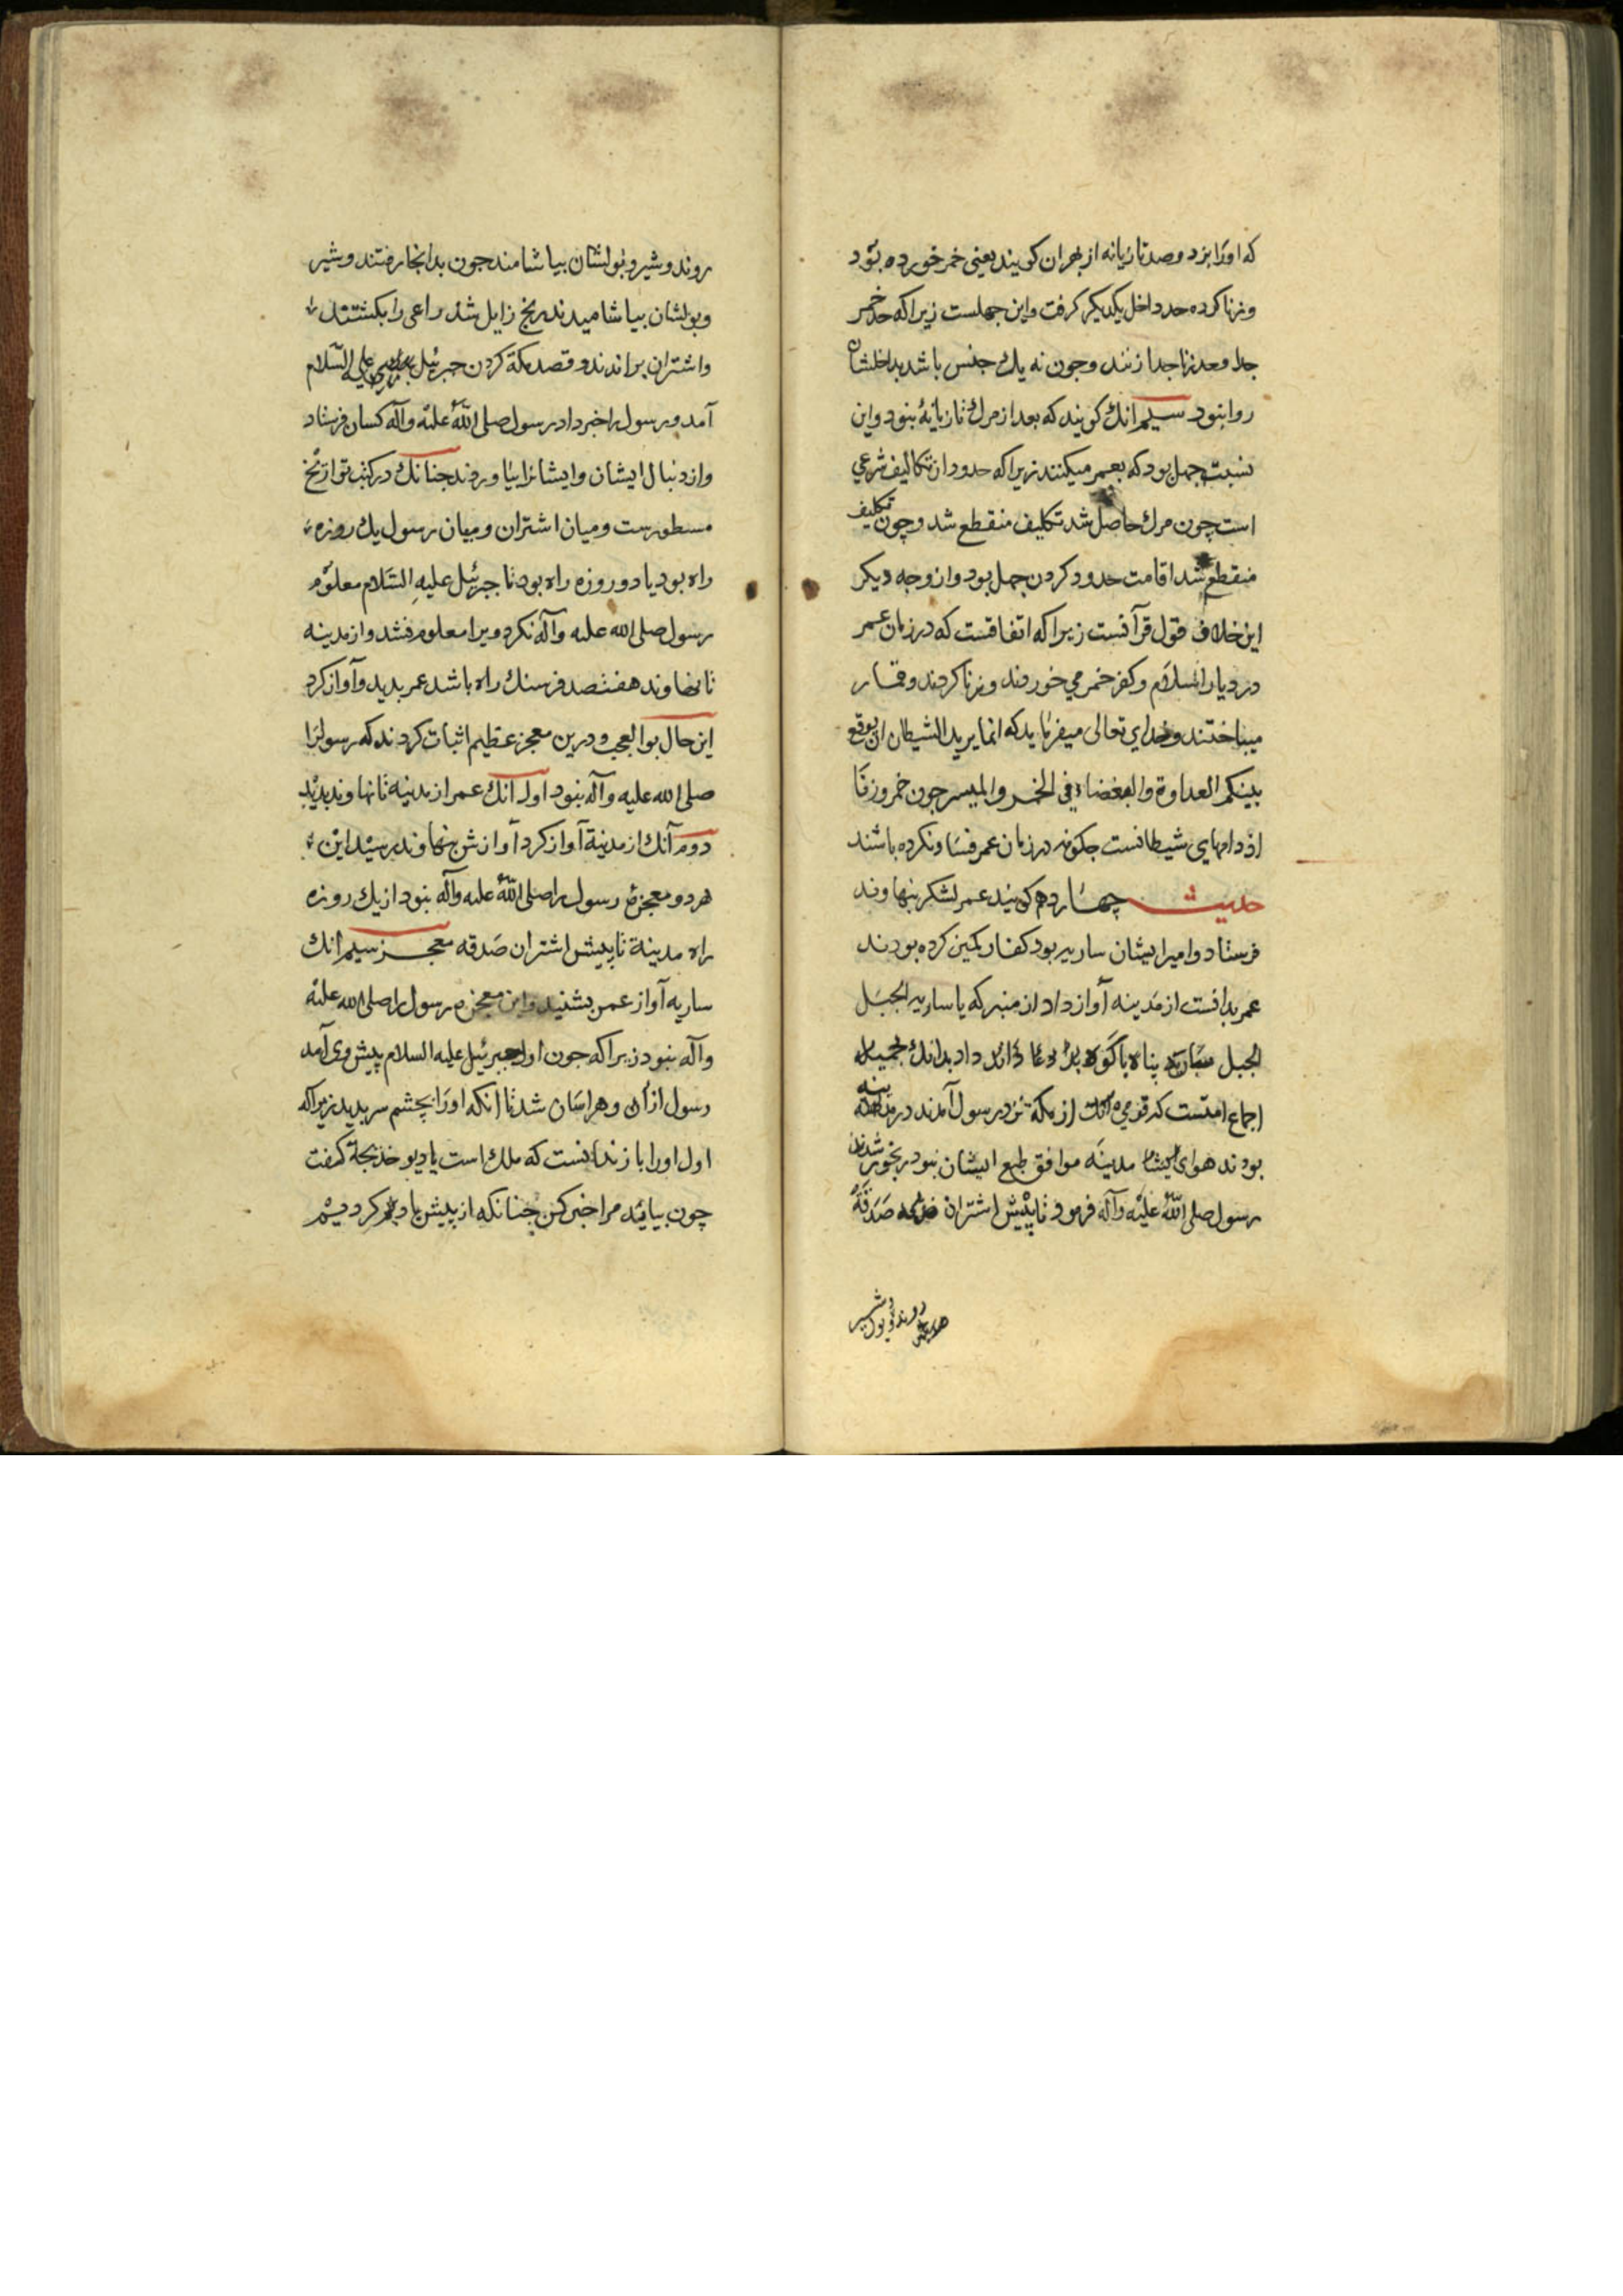 که اورا بزد و صد تازیانه از بهر ان کویند یعنی خمر خورده بود
و زنا کرده حد داخل یکدیکر کرفت و این جهلست زیرا که حد خمر
جدا و حد زنا جدا زنند و چون نه یك جنس باشد بداخلشان
روا نبود سیم انك کویند که بعد از مرك تازیانهٔ نبود و این
نسبت جهل بود که بعمر میکنند زیرا که حدود از تکالیف شرعی
است چون مرك حاصل شد تکلیف منقطع شد و چون تکلیف
منقطع شد اقامت حدود کردن جهل بود و از وجه دیکر
این خلاف قول قرآنست زیرا که اتفاقست که در زمان عمر
در دیار اسلام و کفر خمر می خوردند و زنا کردند و قمار
میباختند و خدای تعالی میفرماید که انما یرید الشیطان ان یوقع
بینکم العداوة والبغضاء فی الخمر والمیسر چون خمر و زنا
از دامهای شیطانست چکونه در زمان عمر فساد نکرده باشند
حدیث چهاردهم کویند عمر لشکر بنهاوند
فرستاد و امیر ایشان ساریه بود کفار کمین کرده بودند
عمر بدانست از مدینه آواز داد از منبر که یا ساریه الجبل
الجبل ساریه پناه با کوه داد بدانك بجمیل
اجماع امتست که قومی از مکة نزد رسول آمدند در مدینه
بودند هوای مدینه موافق طبع ایشان نبود رنجور شدند
رسول صلی الله علیه وآله فرمود تا پیش اشتران صدقه
روند و شیر
و بول
روند و شیر و بولشان بیاشامند چون بدانجا رفتند و شیر
و بولشان بیاشامیدند رنج زایل شد راعی را بکشتند
و اشتران براندند و قصد مکة کردن جبرئیل علیه السّلام
آمد و رسول را خبر داد رسول صلی الله علیه وآله کسان فرستاد
و از دنبال ایشان و ایشانرا بیاوردند چنانك در کتب تواریخ
مسطورست و میان اشتران و میان رسول یك روزه
راه بود یا دو روزه راه بود تا جبرئیل علیه السّلام معلوم
رسول صلی الله علیه وآله نکرد ویرا معلوم نشد و از مدینه
تا نهاوند هفتصد فرسنك راه باشد عمر بدید و آواز کرد
این حال بوالعجب و درین معجز عظیم اثبات کردند که رسولرا
صلی الله علیه وآله نبود اول آنك عمر از مدینه تا نهاوند بدید
دوم آنك از مدینة آواز کرد آوازش بنهاوند رسید این
هر دو معجزهٔ رسول را صلی الله علیه وآله نبود از یك روزه
راه مدینة تا پیش اشتران صدقه معجز سیم انك
ساریه آواز عمر بشنید و این معجزه رسول را صلی الله علیه
وآله نبود زیرا که چون اول جبرئیل علیه السلام پیش وی آمد
رسول از آن و هراسان شد تا انکه اورا بچشم سر بدید زیرا که
اول اورا باز ندانست که ملك است یا دیو خدیجة کفت
چون بیاید مرا خبر کن چنانکه از پیش یاد کردیم